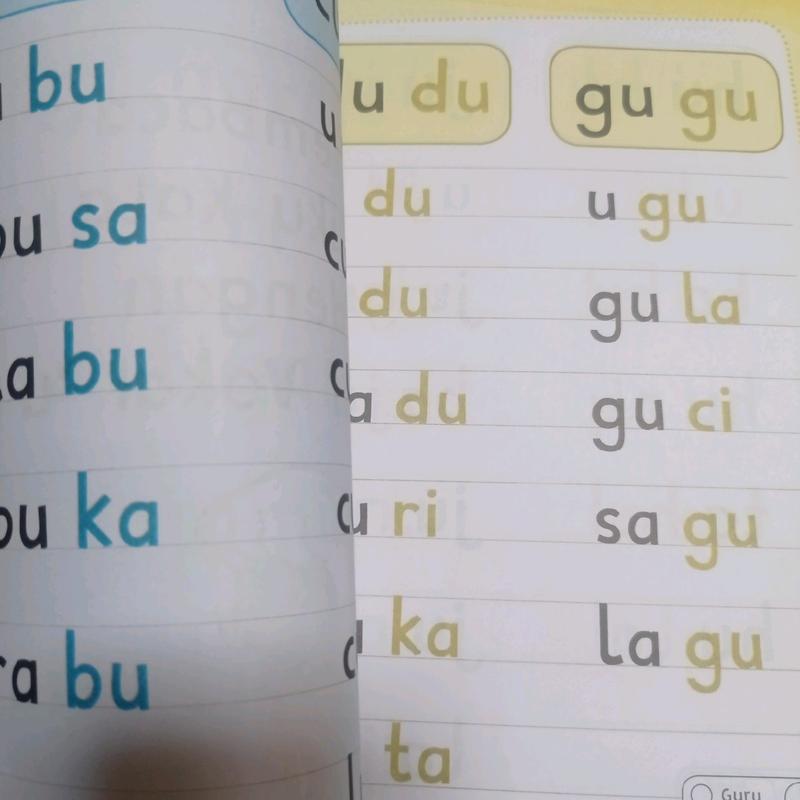 bu
sa
bu
ka
bu
du
du
du
du
ri
ka
ta
gu gu
u gu
gu la
gu ci
sa gu
la gu
Guru